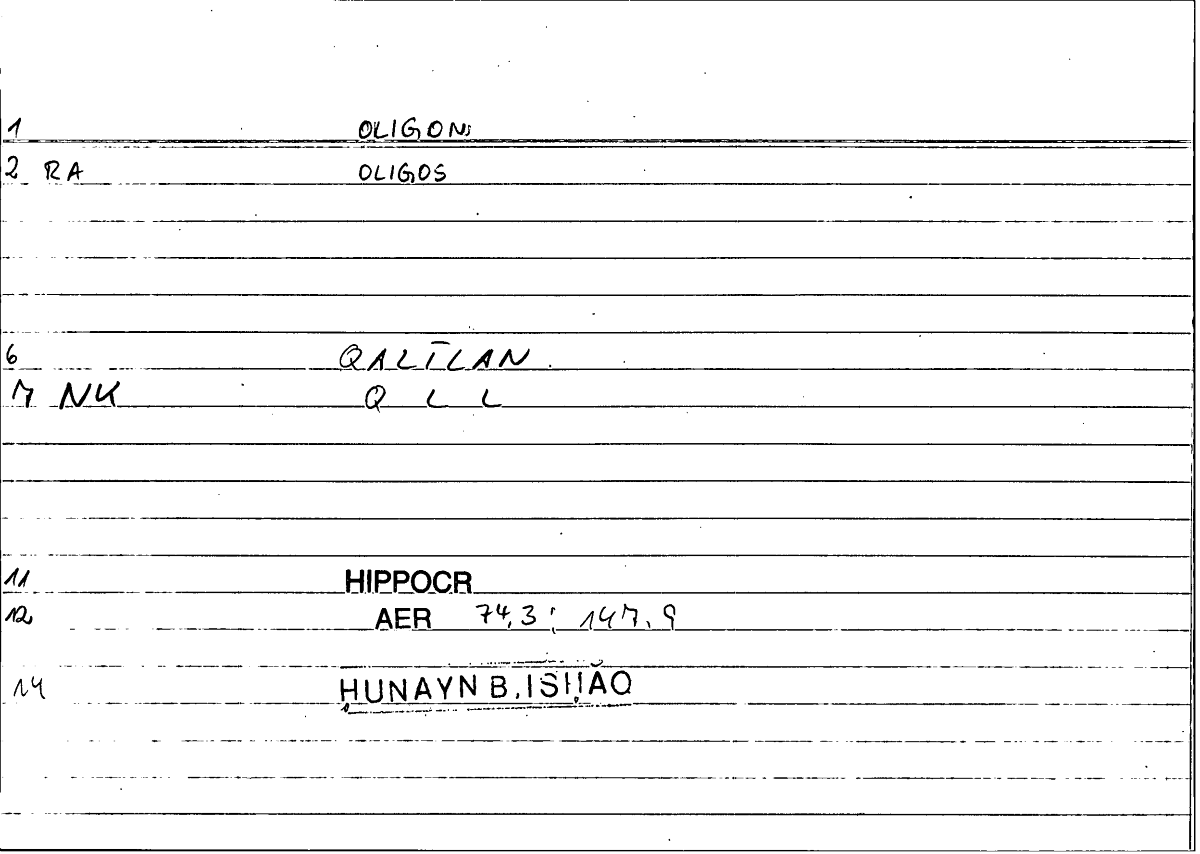 1 OLIGON
2 RA OLIGOS
6 QALĪLAN
7 NK Q L L
11 HIPPOCR
12 AER 74,3; 147,9
14 ḤUNAYN B. ISḤĀQ